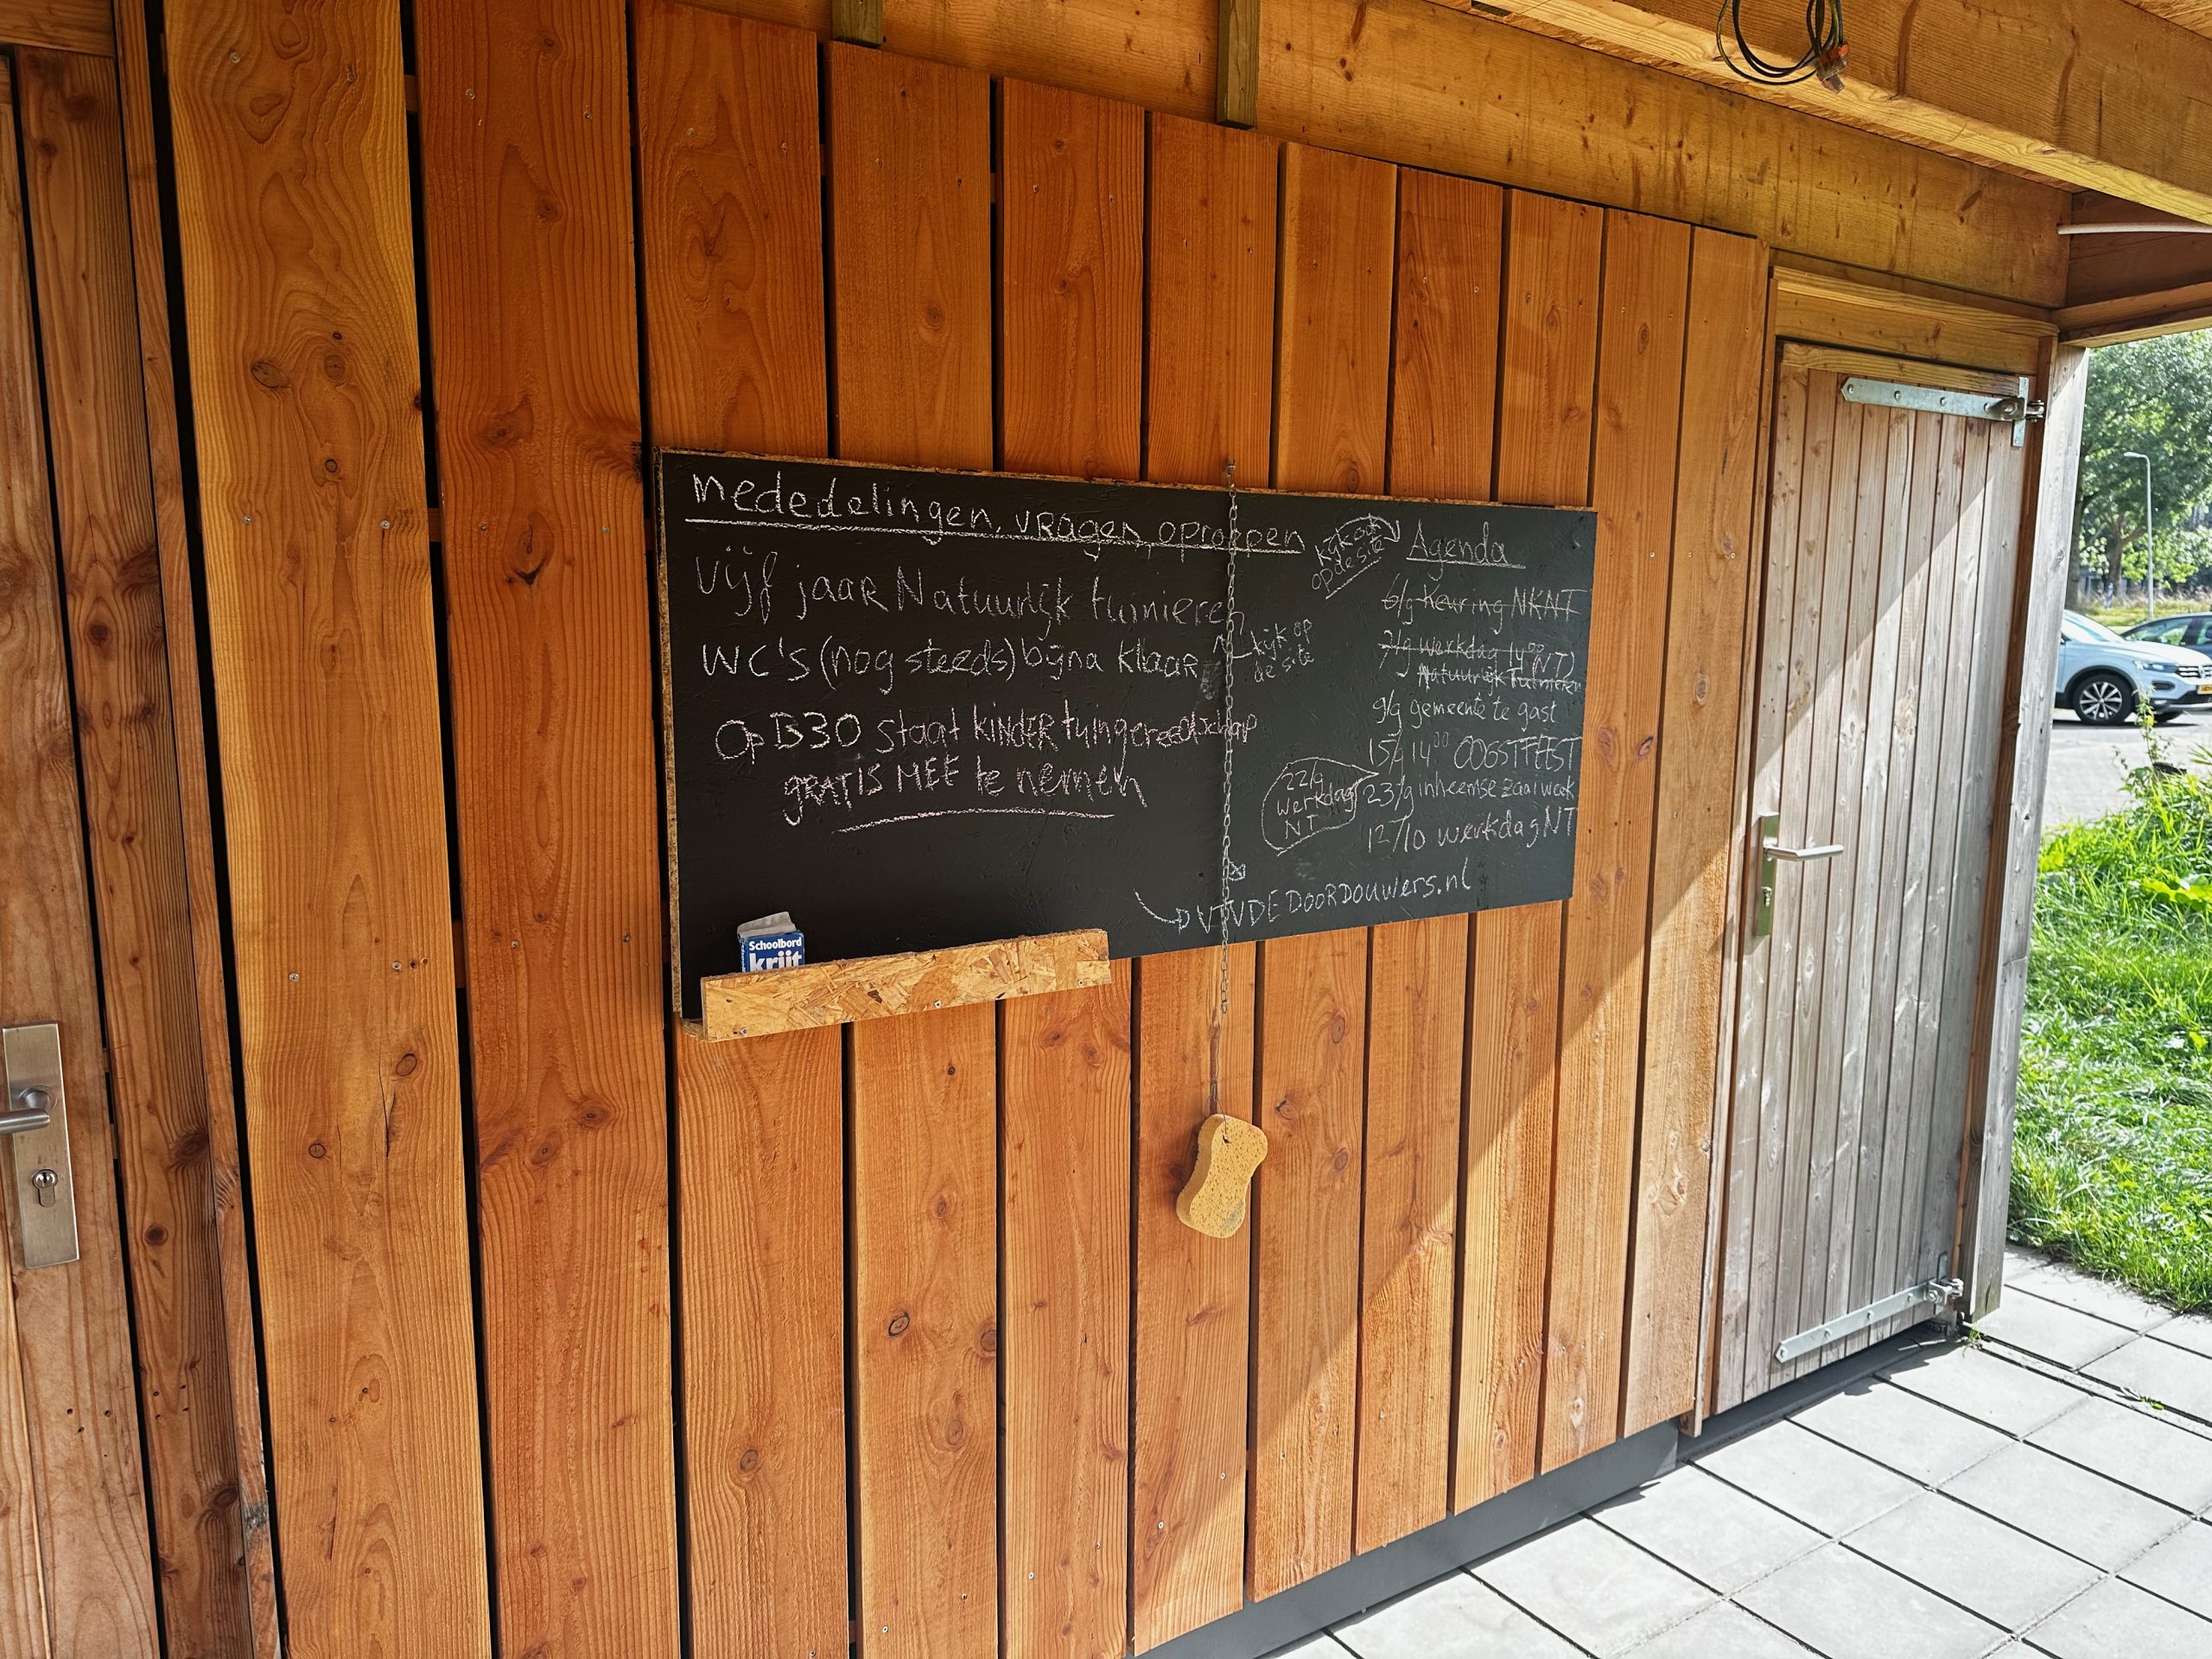 mededelingen, vragen, oproepen
Vijf jaar Natuurlijk tuinieren
WC's (nog steeds) bijna klaar
kijk op
de site
Op B30 staat KINDER tuingereedschap
GRATIS MEE te nemen
kijk ook
op de site
Agenda
6/9 Keuring NKNT
7/9 werkdag 14⁰⁰ NT)
Natuurlijk Tuinieren
9/9 gemeente te gast
15/9 14⁰⁰ OOGSTFEEST
22/9
werkdag
NT
23/9 inheemse zaaiweek
12/10 werkdag NT
VTVDEDOORDOUWERS.nl
Schoolbord
krijt